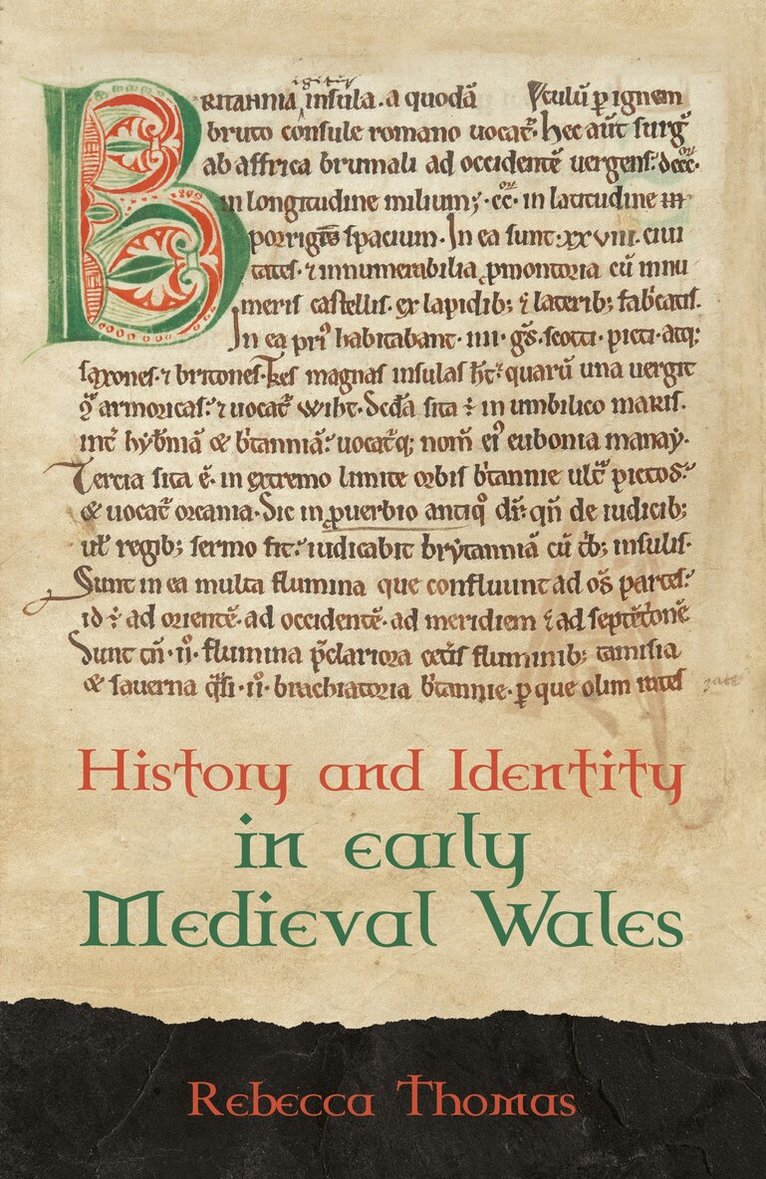 igitur
BRITANNIA insula. a quodā
bruto cōsule romano uocat̄. hec aūt surḡ
ab affrica brumali ad occidentē uergens. dccc.
in longitudine milium; cc. in latitudine
porrigit̄ spacium. In ea sunt. xxviii. ciui
tates. ⁊ innumerabilia ꝓmontoria cū innu
meris castellis. ex lapidib; ⁊ laterib; fab̓catis.
In ea pri° habitabant. iiii. ḡs. scotti. picti. atq;
saxones. ⁊ britones. Tres magnas insulas h̄t. quarū una uergit
armoricas. ⁊ uocat̄ wiht. Scd̄a sita ÷ in umbilico maris.
int̄ hyb̓niā & b̓tanniā. uocat̄q; nom̄ ei° eubonia manaẏ.
Tercia sita ē. in extremo limite orbis b̓tannie ult̄ pictos.
& uocat̄ orcania. Sic in ꝓuerbio antiq° dr̄. qn̄ de iudicib;
ul̄ regib; sermo fit. iudicabit brẏtanniā cū t̓b; insulis.
Sunt in ea multa flumina que confluunt ad om̄s partes.
id ÷ ad orientē. ad occidentē. ad meridiem ⁊ ad septētrionē
Sunt tn̄. ii. flumina p̄clariora cet̓is fluminib; tamisia
& sauerna q̄si. ii. brachiatoria b̓tannie. ꝑ que olim rates
History and Identity
in early
Medieval Wales
Rebecca Thomas